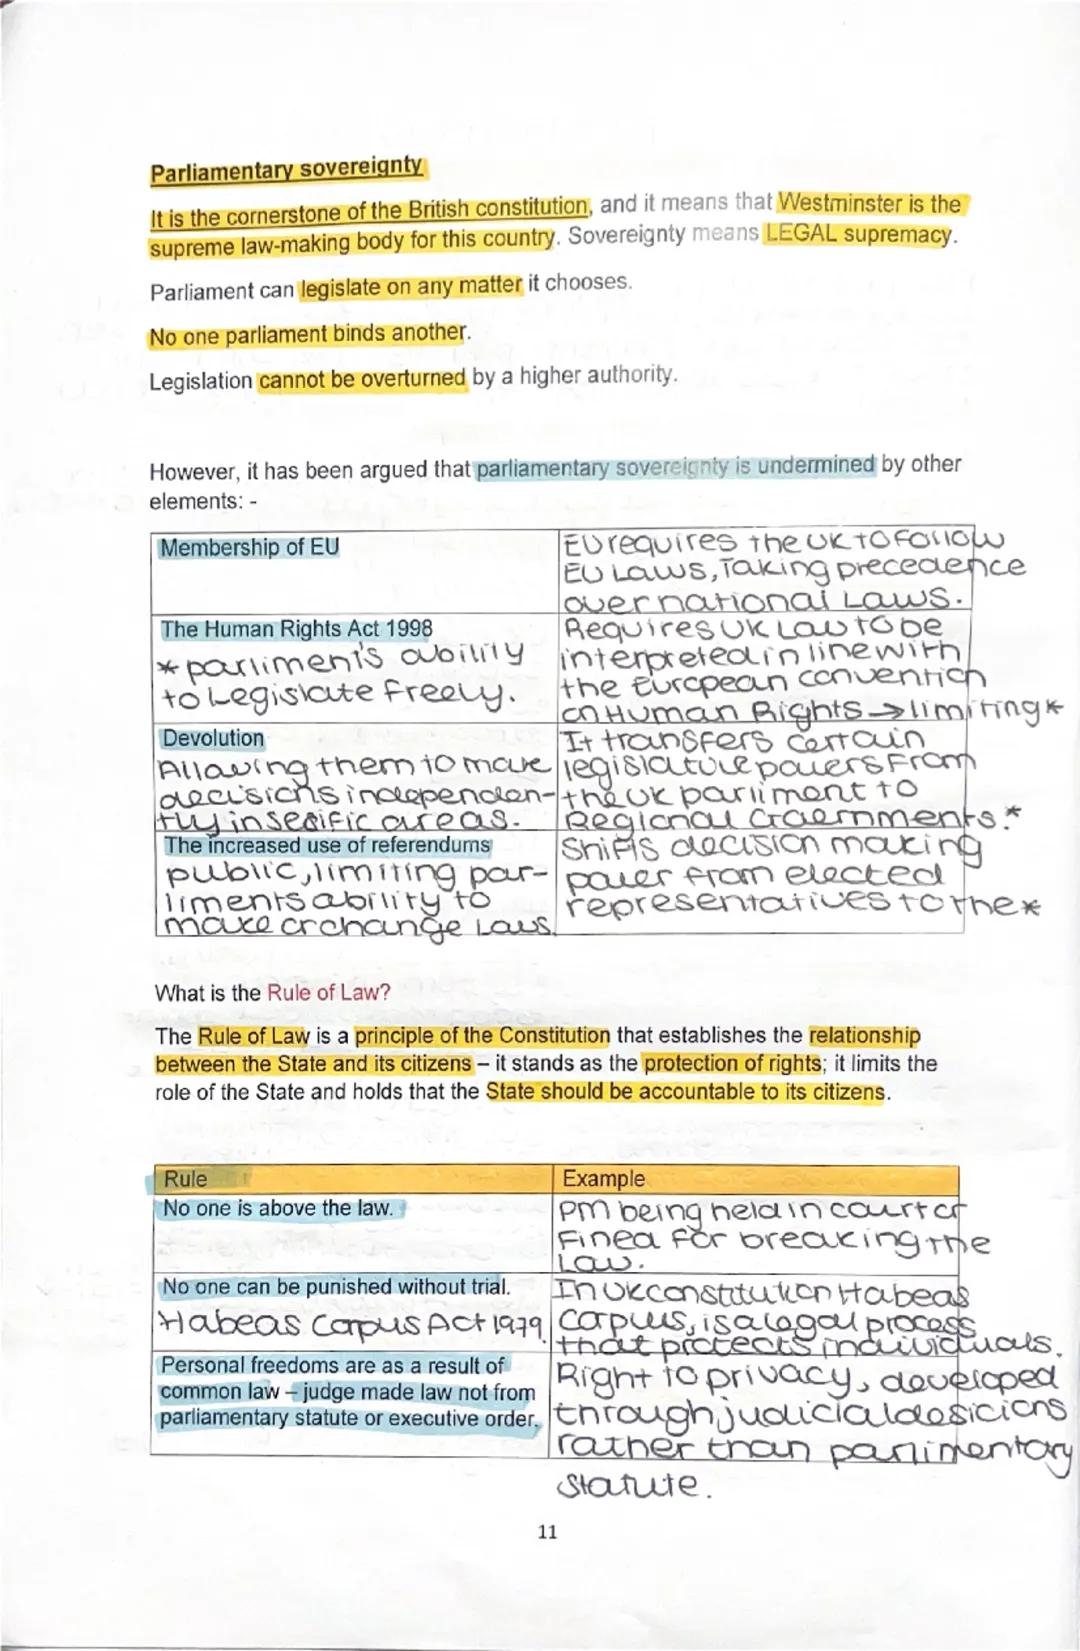 Parliamentary sovereignty
It is the cornerstone of the British constitution, and it means that Westminster is the
supreme law-making body for this country. Sovereignty means LEGAL supremacy.
Parliament can legislate on any matter it chooses.
No one parliament binds another.
Legislation cannot be overturned by a higher authority.
However, it has been argued that parliamentary sovereignty is undermined by other
elements: -
Membership of EU
EU requires the UK to follow
EU Laws, Taking precedence
over national Laws.
The Human Rights Act 1998
* parliment's ability
to Legislate freely.
Requires UK Law to be
interpreted in line with
the European convention
on Human Rights → limiting *
Devolution
Allowing them to make
decisions independen-
tly in sepific areas.
It transfers certain
legislative powers from
the UK parliment to
Regional Governments.*
The increased use of referendums
public, limiting par-
liments ability to
make or change Laws.
Shifts decision making
power from elected
representatives to the *
What is the Rule of Law?
The Rule of Law is a principle of the Constitution that establishes the relationship
between the State and its citizens – it stands as the protection of rights; it limits the
role of the State and holds that the State should be accountable to its citizens.
Rule
Example
No one is above the law.
PM being held in court or
Fined for breaking the
Law.
No one can be punished without trial.
Habeas Corpus Act 1979.
In UK constitution Habeas
Corpus, is a legal process
that protects individuals.
Personal freedoms are as a result of
common law – judge made law not from
parliamentary statute or executive order.
Right to privacy, developed
through judicial desicions
rather than parlimentary
statute.
11